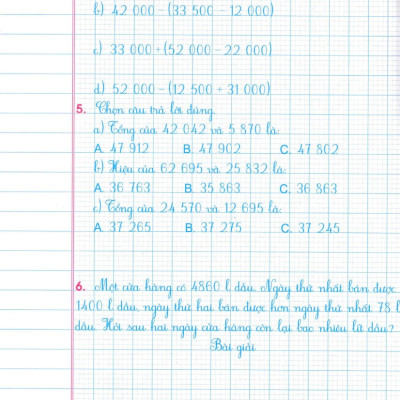 b) 42 000 - (33 500 - 12 000)
c) 33 000 + (52 000 - 22 000)
d) 52 000 - (12 500 + 31 000)
5. Chọn câu trả lời đúng.
a) Tổng của 42 042 và 5 870 là:
A. 47 912 B. 47 902 C. 47 802
b) Hiệu của 62 695 và 25 832 là:
A. 36 763 B. 35 863 C. 36 863
c) Tổng của 24 570 và 12 695 là:
A. 37 265 B. 37 275 C. 37 245
6. Một cửa hàng có 4860 l dầu. Ngày thứ nhất bán được
1400 l dầu, ngày thứ hai bán được hơn ngày thứ nhất 78 l
dầu. Hỏi sau hai ngày cửa hàng còn lại bao nhiêu lít dầu?
Bài giải